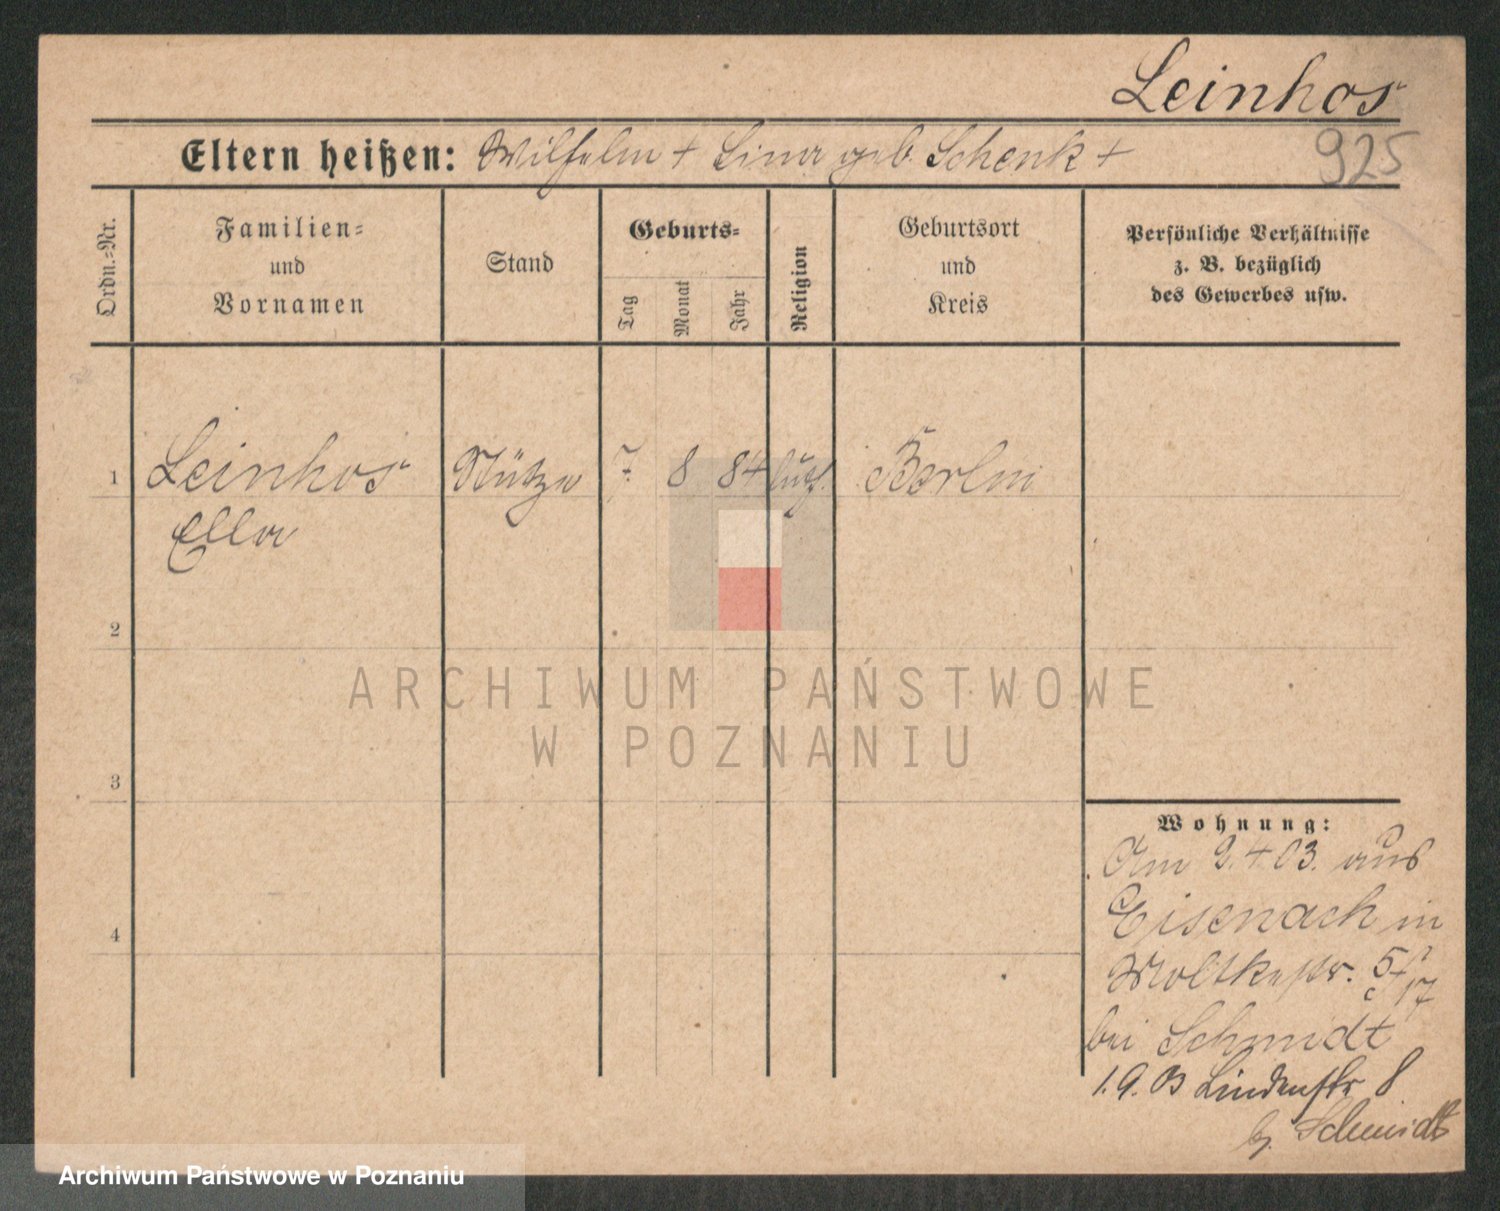 Leinhos
Eltern heißen: Wilhelm + Lina geb. Schenk +
925
Ordn.-Nr.
Familien-
und
Vornamen
Stand
Geburts-
Tag
Monat
Jahr
Religion
Geburtsort
und
Kreis
Persönliche Verhältnisse
z. B. bezüglich
des Gewerbes usw.
1 Leinhos Stütze 7 8 84 Berlin
Ella
2
ARCHIWUM PAŃSTWOWE
W POZNANIU
3
4
Wohnung:
Am 2.4.03. aus
Eisenach in
Moltkestr.
bei Schmidt
1.9.03 Lindenstr 8
b. Schmidt
Archiwum Państwowe w Poznaniu